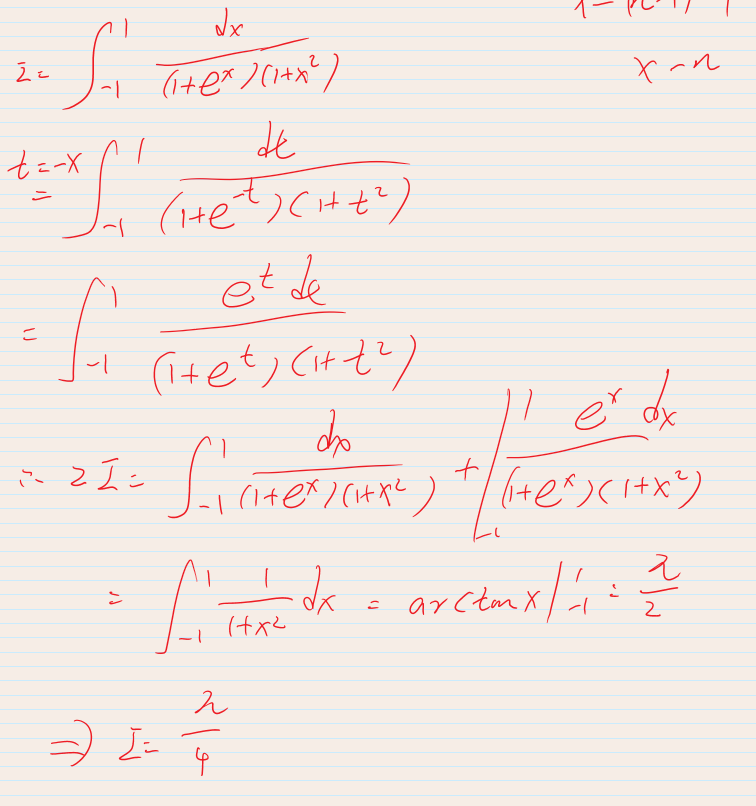 x - n
I = ∫_{-1}^{1} dx / (1+e^x)(1+x^2)
t=-x = ∫_{-1}^{1} dt / (1+e^{-t})(1+t^2)
= ∫_{-1}^{1} e^t dt / (1+e^t)(1+t^2)
∴ 2I = ∫_{-1}^{1} dx / (1+e^x)(1+x^2) + ∫_{-1}^{1} e^x dx / (1+e^x)(1+x^2)
= ∫_{-1}^{1} 1/(1+x^2) dx = arctan x |_{-1}^{1} = π/2
⇒ I = π/4